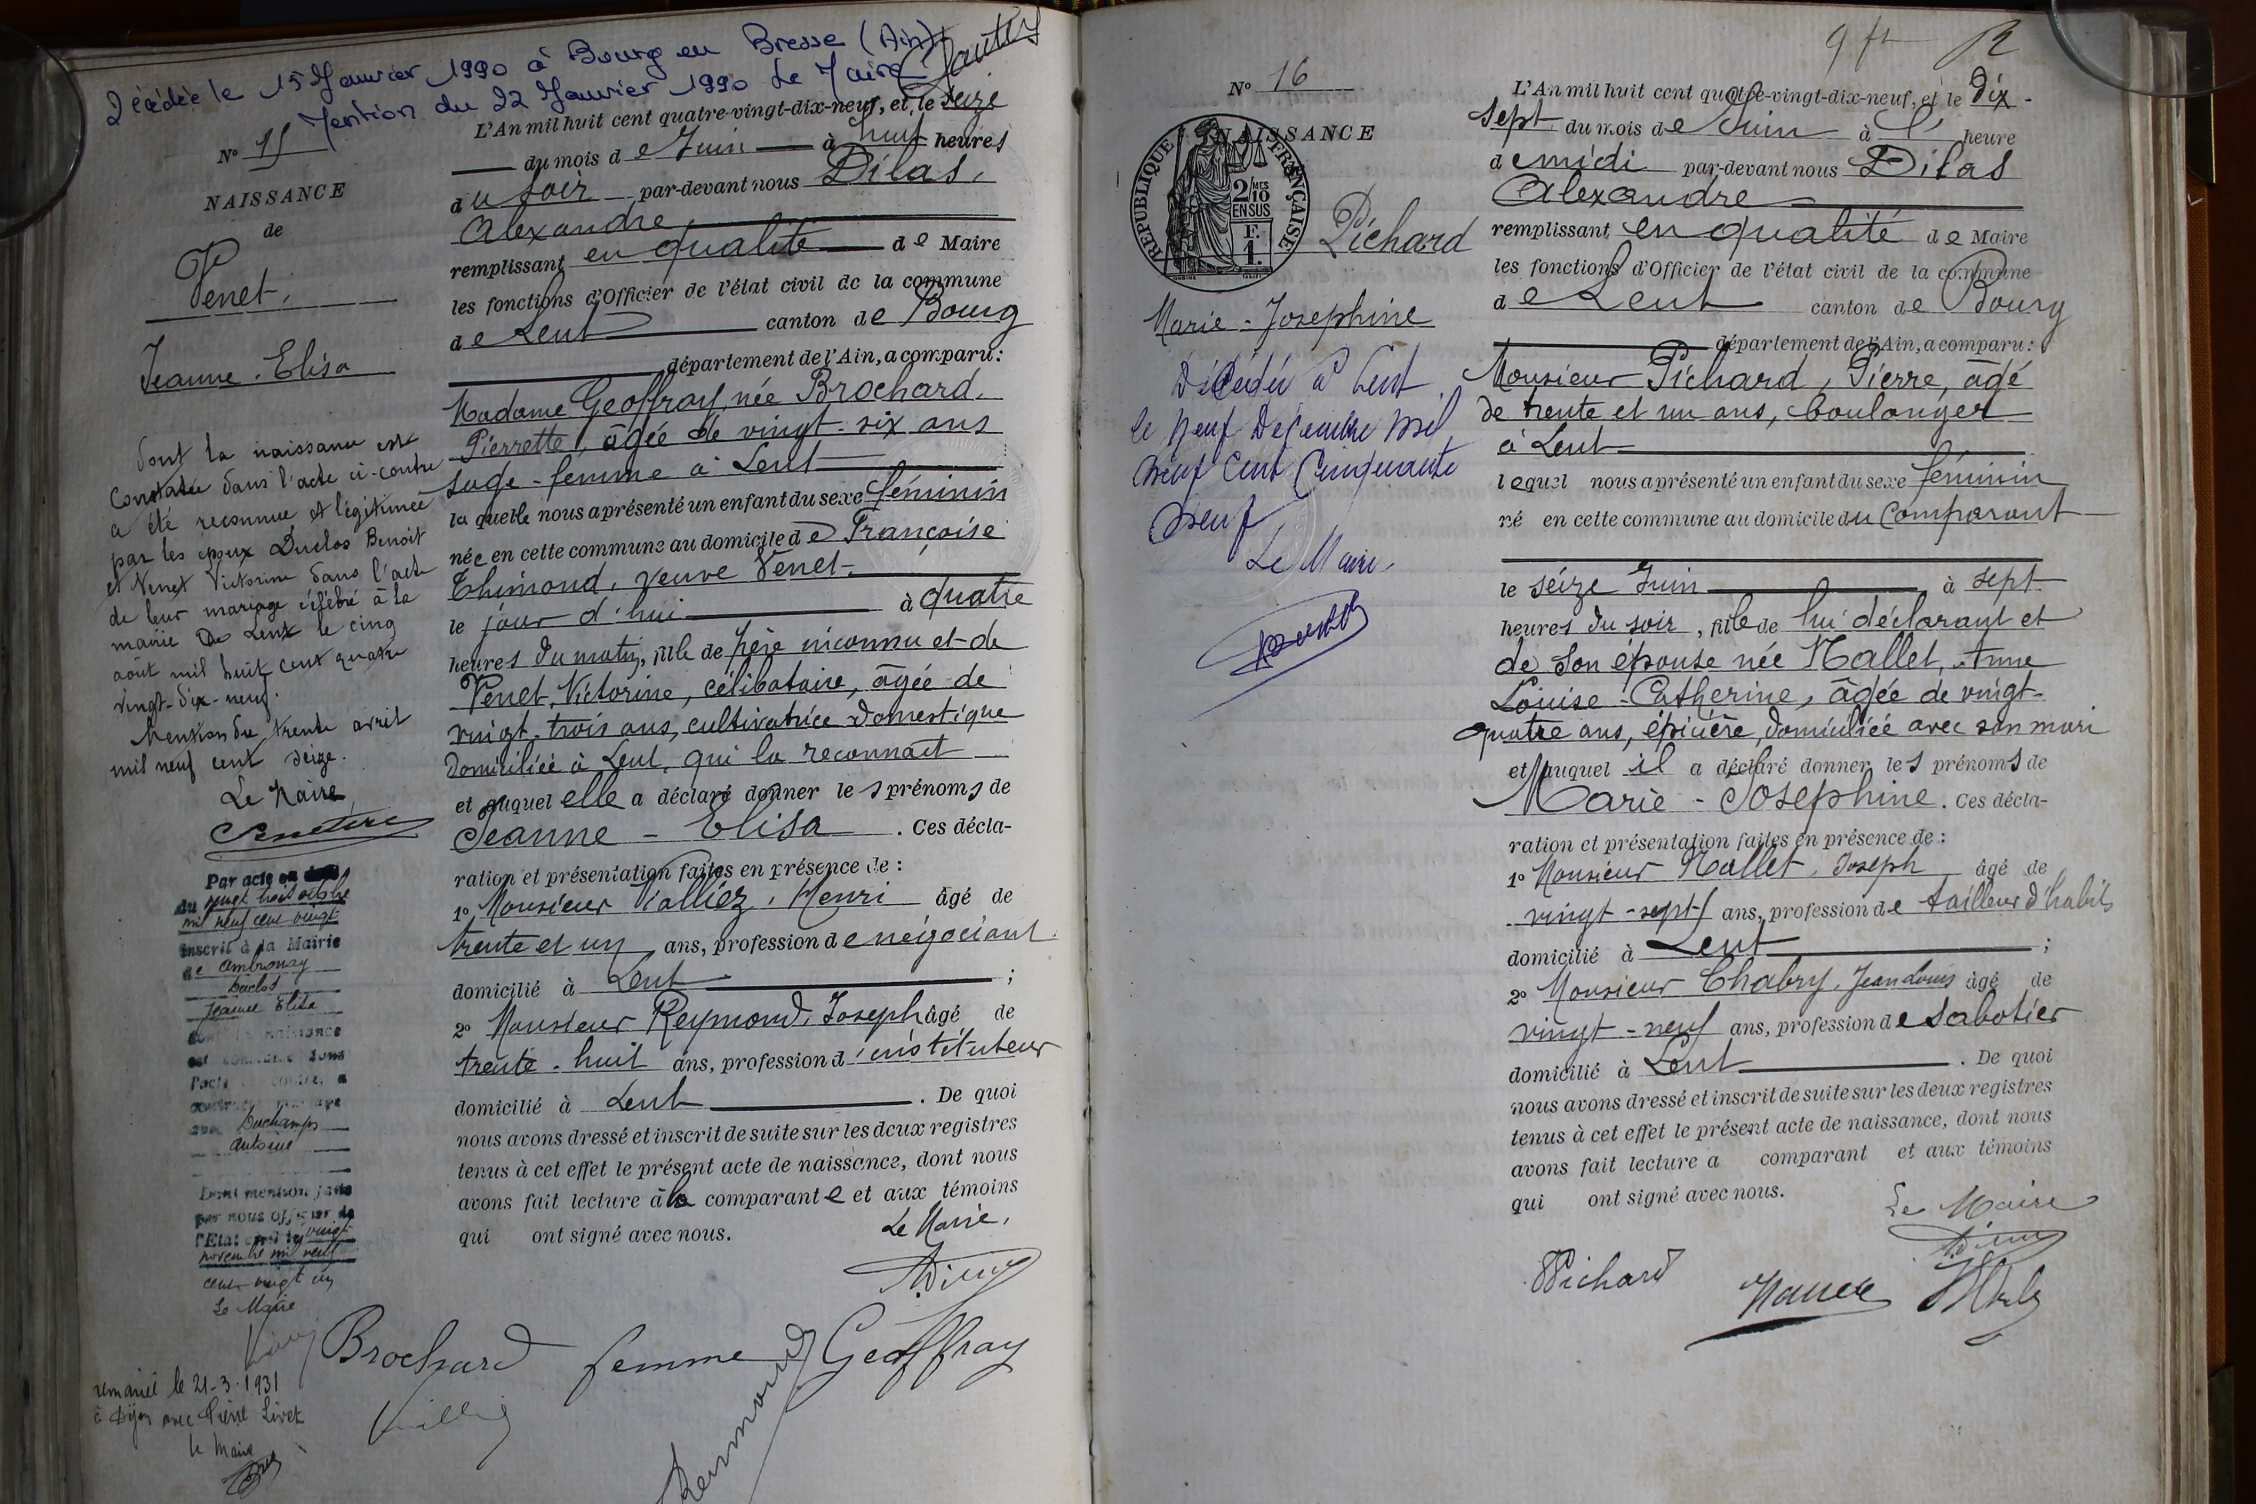 Décédée le 15 Janvier 1990 à Bourg en Bresse (Ain)
Mention du 22 Janvier 1990 Le Maire
N° 15
NAISSANCE
de
Venet,
Jeanne-Elisa
dont la naissance est
constatée dans l'acte ci-contre
a été reconnue et légitimée
par les époux Duclos Benoit
et Venet Victorine dans l'acte
de leur mariage célébré à la
mairie de Lent le cinq
août mil huit cent quatre
vingt-dix-neuf.
Mention du trente avril
mil neuf cent seize.
Le Maire
Par acte en date
du vingt huit octobre
mil neuf cent vingt
inscrit à la Mairie
de Ambronay
Duclos
Jeanne Elisa
dont la naissance
est constatée dans
l'acte ci-contre, a
contracté mariage
avec Duchamps
Antoine
Dont mention faite
par nous officier de
l'Etat civil le vingt
novembre mil neuf
cent vingt un
Le Maire
remariée le 21-3-1931
à Dijon avec Pierre Livet
le Maire
L'An mil huit cent quatre-vingt-dix-neuf, et le seize
du mois de Juin à huit heures
du soir par-devant nous Dilas,
Alexandre
remplissant en qualité de Maire
les fonctions d'Officier de l'état civil de la commune
de Lent canton de Bourg
département de l'Ain, a comparu:
Madame Geoffray née Brochard,
Pierrette, âgée de vingt-six ans
sage-femme à Lent
laquelle nous a présenté un enfant du sexe féminin
née en cette commune au domicile de Françoise
Thimond, veuve Venet,
le jour d'hui à quatre
heures du matin, fille de père inconnu et de
Venet, Victorine, célibataire, âgée de
vingt-trois ans, cultivatrice domestique
domiciliée à Lent, qui la reconnaît
et auquel elle a déclaré donner les prénoms de
Jeanne - Elisa. Ces décla-
ration et présentation faites en présence de :
1° Monsieur Valliez, Henri âgé de
trente et un ans, profession de négociant
domicilié à Lent ;
2° Monsieur Reymond, Joseph âgé de
trente-huit ans, profession d'instituteur
domicilié à Lent. De quoi
nous avons dressé et inscrit de suite sur les deux registres
tenus à cet effet le présent acte de naissance, dont nous
avons fait lecture à la comparante et aux témoins
qui ont signé avec nous.
Le Maire,
Brochard femme Geoffray
Reymond
9 fr
N° 16
NAISSANCE
RÉPUBLIQUE FRANÇAISE
2/10
MES
EN SUS
F.
1.
Pichard
Marie-Josephine
Décédée à Lent
le neuf Décembre mil
neuf cent cinquante
neuf
Le Maire
L'An mil huit cent quatre-vingt-dix-neuf, et le dix-
sept du mois de Juin à l' heure
de midi par-devant nous Dilas
Alexandre
remplissant en qualité de Maire
les fonctions d'Officier de l'état civil de la commune
de Lent canton de Bourg
département de l'Ain, a comparu:
Monsieur Pichard, Pierre, âgé
de trente et un ans, boulanger
à Lent
lequel nous a présenté un enfant du sexe féminin
né en cette commune au domicile du comparant
le seize Juin à sept
heures du soir, fille de lui déclarant et
de son épouse née Mallet, Anne
Louise-Catherine, âgée de vingt-
quatre ans, épicière, domiciliée avec son mari
et auquel il a déclaré donner les prénoms de
Marie - Joséphine. Ces décla-
ration et présentation faites en présence de :
1° Monsieur Mallet, Joseph âgé de
vingt-sept ans, profession de tailleur d'habits
domicilié à Lent ;
2° Monsieur Chabry, Jean Louis âgé de
vingt-neuf ans, profession de sabotier
domicilié à Lent. De quoi
nous avons dressé et inscrit de suite sur les deux registres
tenus à cet effet le présent acte de naissance, dont nous
avons fait lecture a comparant et aux témoins
qui ont signé avec nous.
Le Maire
Pichard